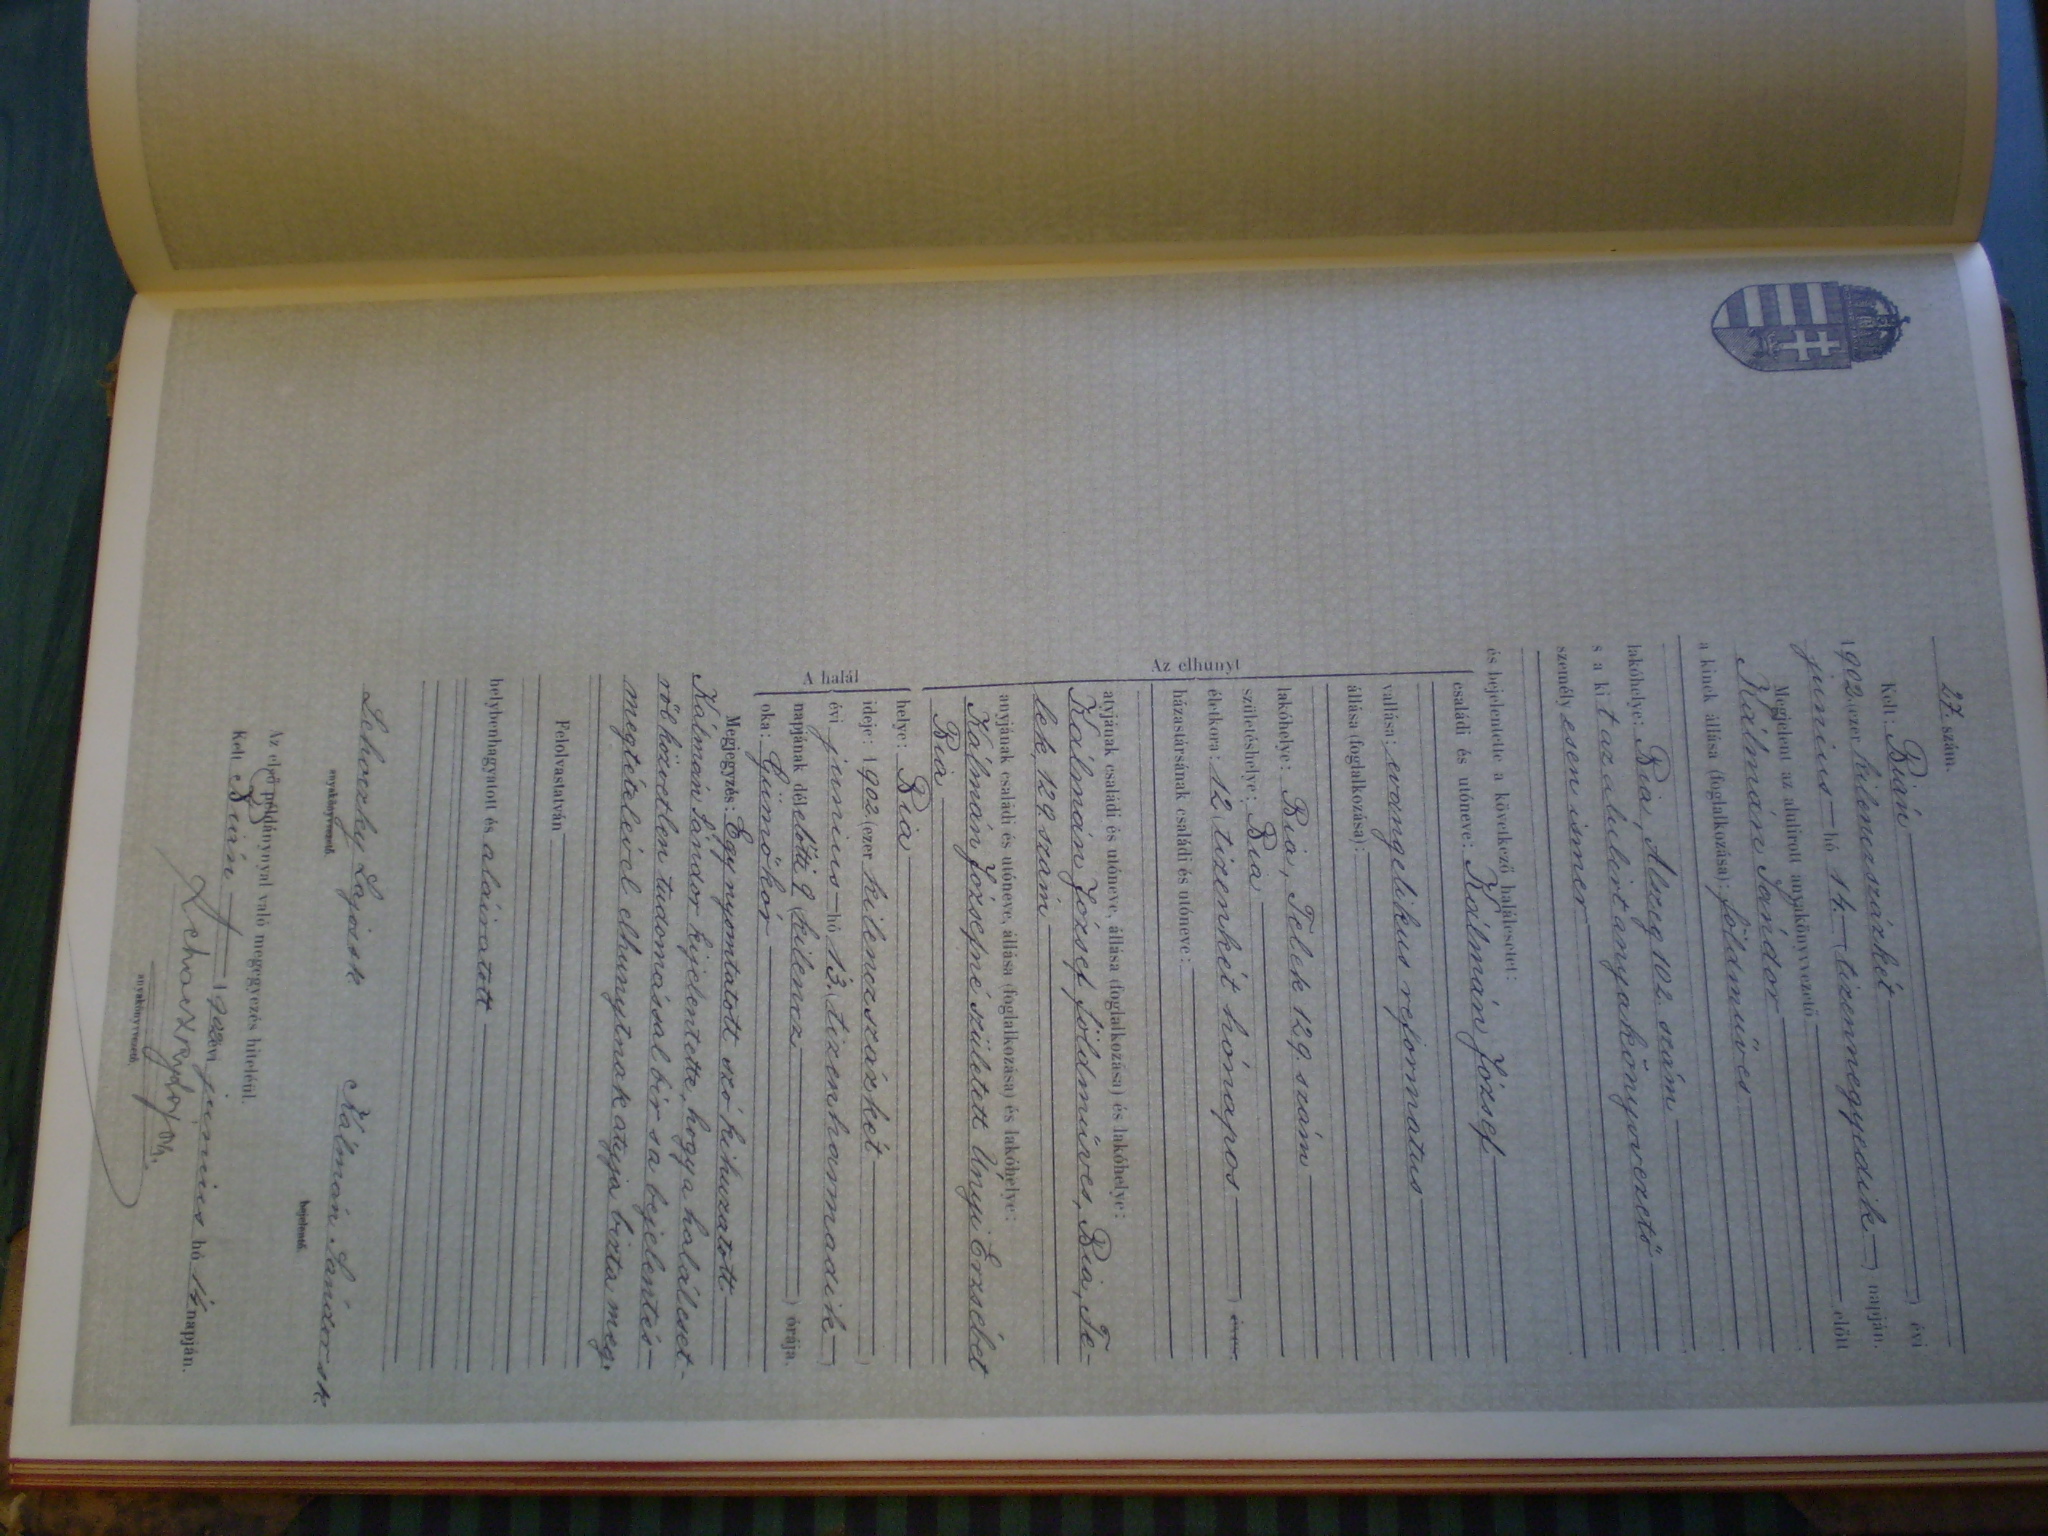 27. szám.
Kelt: Bián — ) évi
1902. (ezer kilenczszázkét
junius — hó 14. — (tizennegyedik — ) napján.
Megjelent az alulirott anyakönyvvezető — előtt
Kálmán Sándor
a kinek állása (foglalkozása): földműves
lakóhelye: Bia, Alszeg 102. szám
s a kit az alulirt anyakönyvvezető
személyesen ismer
és bejelentette a következő halálesetet:
Az elhunyt
családi és utóneve: Kálmán József
vallása: evangelikus reformatus
állása (foglalkozása): —
lakóhelye: Bia, Telek 129. szám
születéshelye: Bia
életkora: 12, tizenkét hónapos — ) éves.
házastársának családi és utóneve: —
atyjának családi és utóneve, állása (foglalkozása) és lakóhelye:
Kálmán József földműves, Bia, Te-
lek, 129. szám
anyjának családi és utóneve, állása (foglalkozása) és lakóhelye:
Kálmán Józsefné született Unyi Erzsébet
Bia
A halál
helye: Bia
ideje: 1902. (ezer kilenczszázkét — )
évi junius — hó 13. (tizenharmadik — )
napjának dél előtti 9, (kilencz — ) órája.
oka: Gümőkór
Megjegyzés: Egy nyomtatott szó kihuzatott.
Kálmán Sándor kijelentette, hogy a haláleset-
ről közvetlen tudomással bír s a bejelentés
megtételével elhunytnak atyja bizta meg.
Felolvastatván
helybenhagyatott és aláiratott
Lehoczky Lajos sk
anyakönyvvezető.
Kálmán Sándor sk.
bejelentő.
Az első példánynyal való megegyezés hiteléül.
Kelt Bián — 1902 évi junius hó 14 napján.
Lehoczky Lajos
anyakönyvvezető.